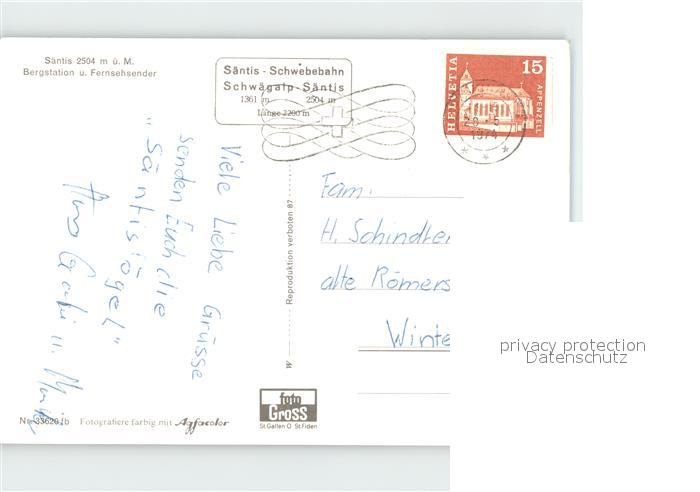 Säntis 2504 m ü. M.
Bergstation u. Fernsehsender
Säntis - Schwebebahn
Schwägalp - Säntis
1361 m 2504 m
Länge 2200 m
HELVETIA
15
APPENZELL
1974
Viele Liebe Grüsse
senden Euch die
"Säntisvögel"
Fam.
H. Schindler
alte Römers
Winte
Reproduktion verboten 87
W
foto
Gross
St. Gallen O St. Fiden
Nr. 33620 fb Fotografiere farbig mit Agfacolor
privacy protection
Datenschutz